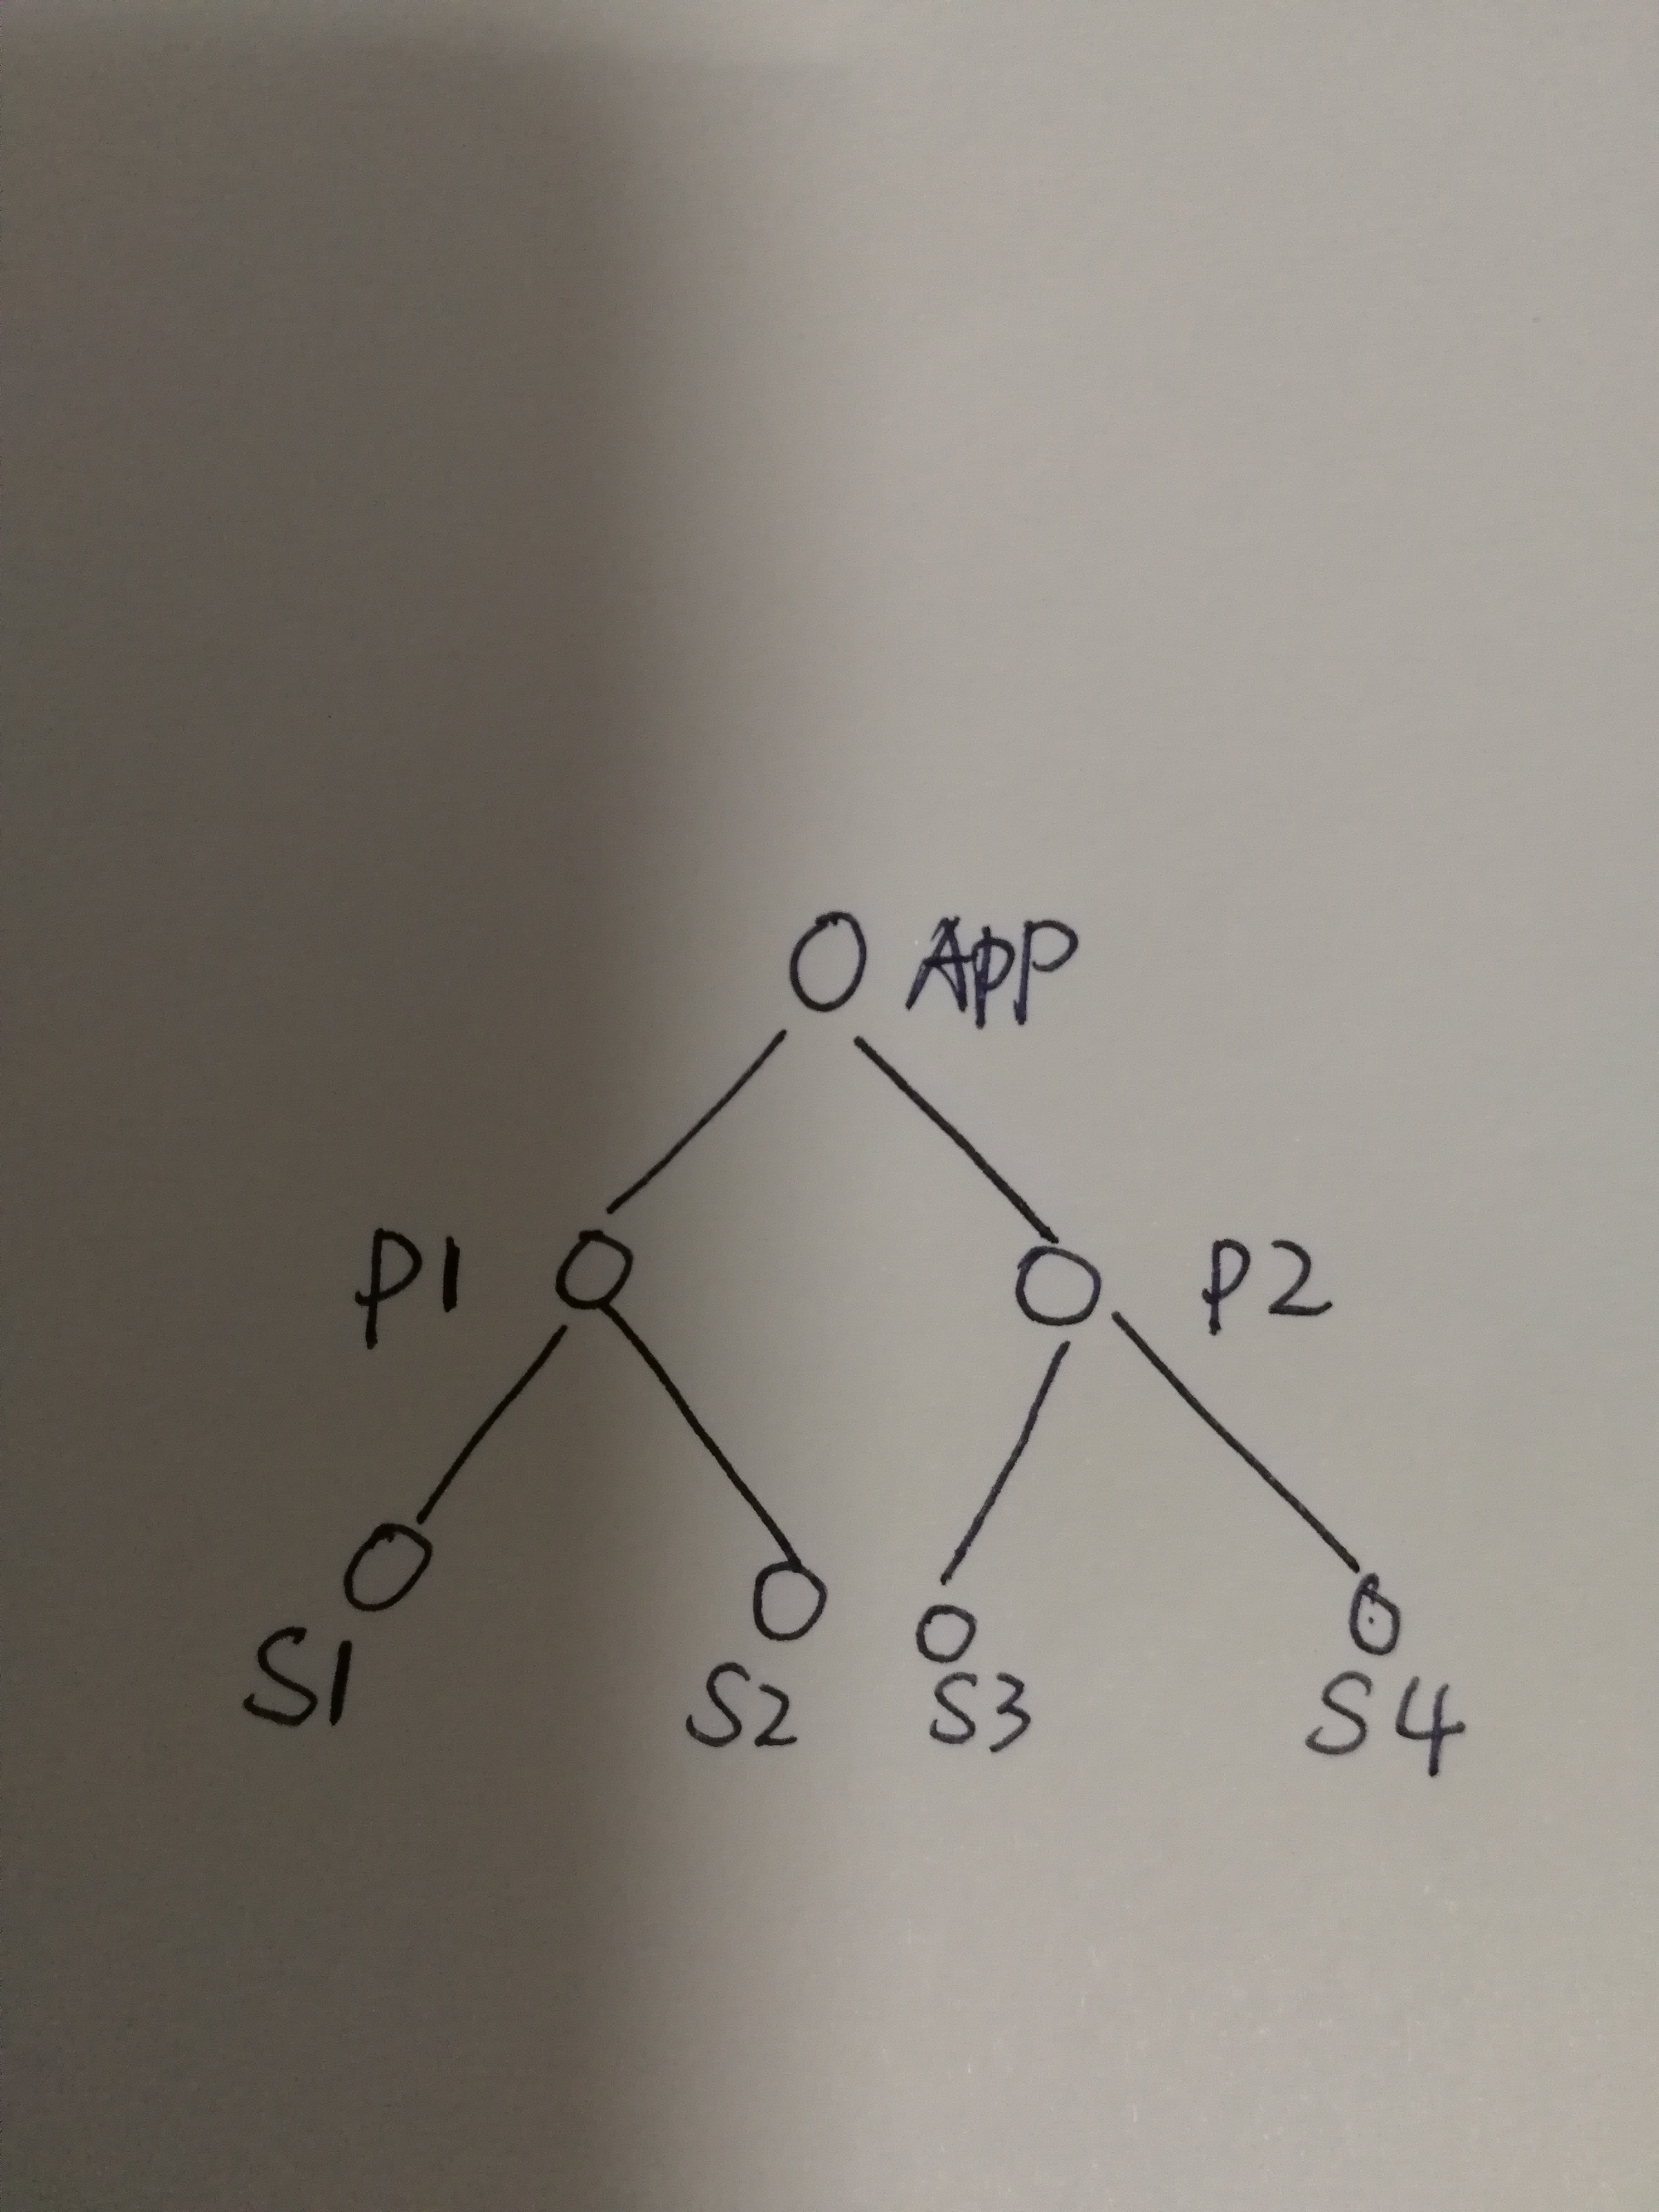 APP
P1 P2
S1 S2 S3 S4